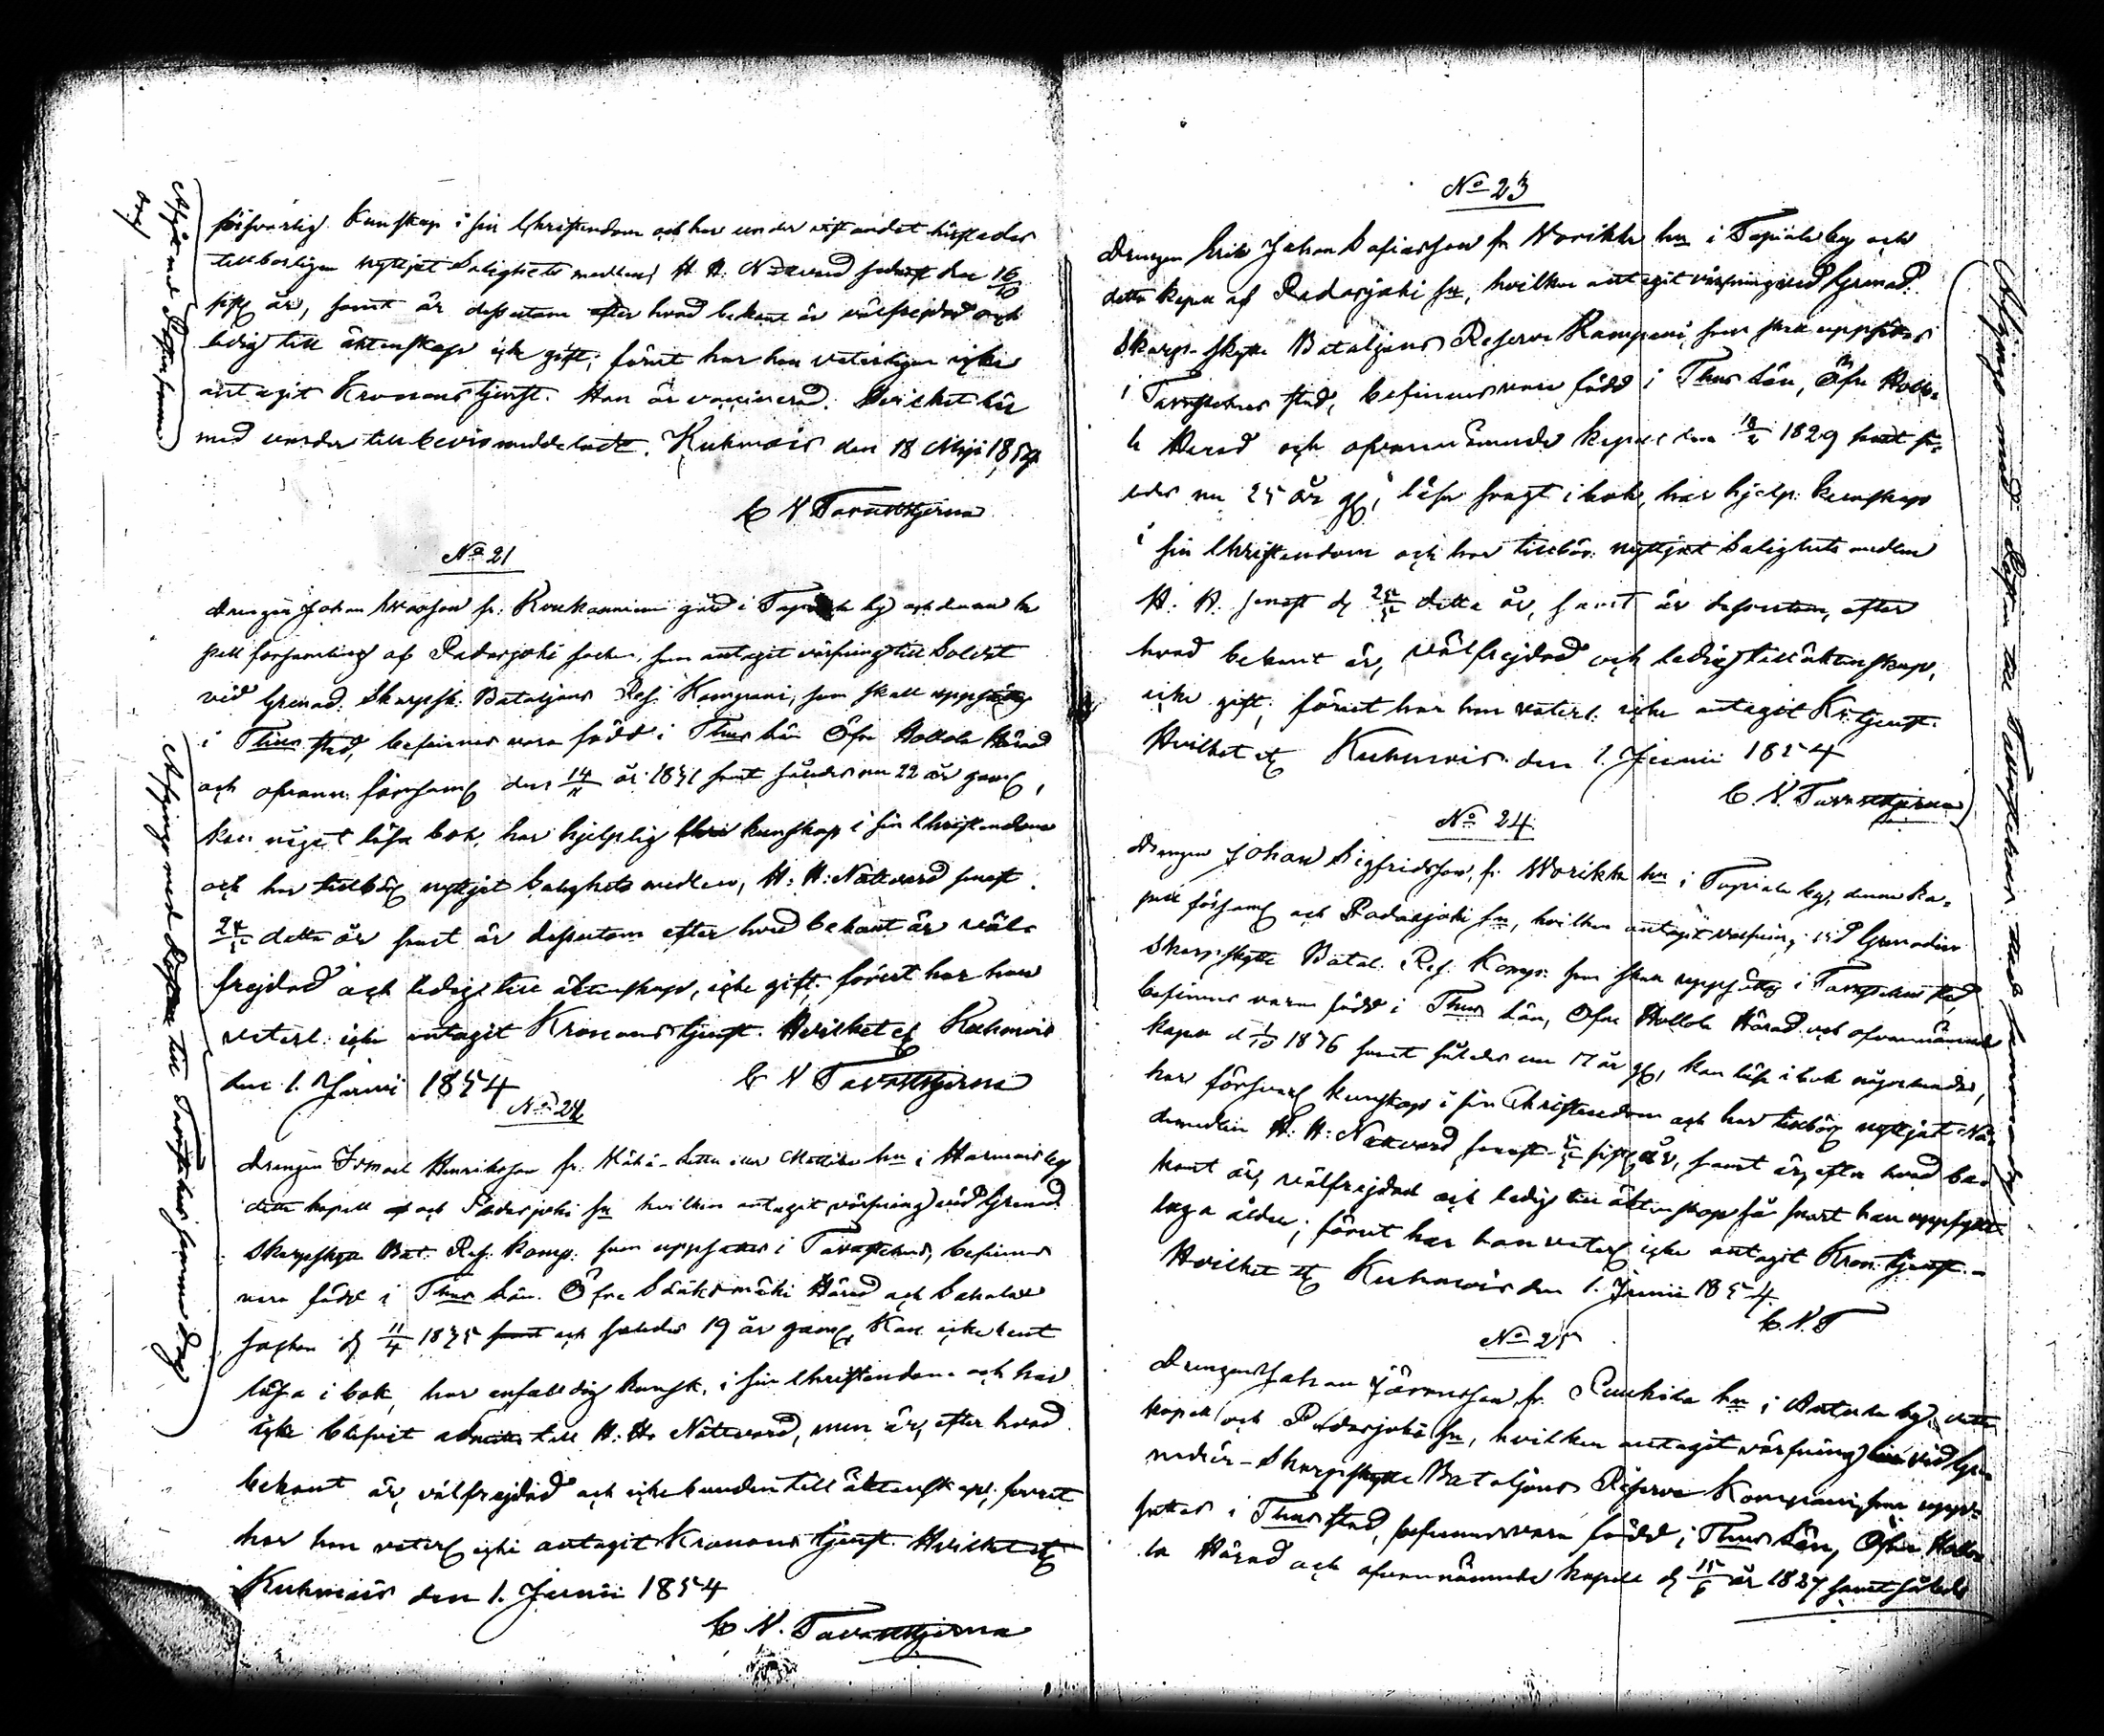 försvarlig kunskap i sin Christendom och har under vistandet härstädes
tillbörligen nyttjat Salighets medlens H. H. Nattvard senast den 16/10
sistl. år, samt är dessutom efter hvad bekant är välfrejdad och
ledig till äktenskap icke gift; förut har han veterligen icke
antagit Kronans tjenst. Han är vaccinerad. Hvilket här
med varder till bevis meddeladt. Kuhmois den 18 Maji 1854
C N Tavaststjerna
No 21
Drengen Johan fr. gård i by och denna ka
pell församling af Padasjoki socken, som antagit värfning till Soldat
vid Grenad. Skarpsk. Bataljons Res. Kompani, som skall uppsättas
i Thus stad, befinnes vara född i Thus Län Öfre Hollola Härad
och ofvann. församl. den 14/11 år 1831 samt således nu 22 år gaml,
kan något läsa bok, har hjelplig kunskap i sin Christendom
och har tillbörl nyttjat Salighets medlen, H: H: Nattvard senast
detta år samt är dessutom efter hvad bekant är väl-
frejdad och ledig till äktenskap, icke gift; förut har han
veterl: icke antagit Kronans tjenst. Hvilket etc Kuhmois
den 1. Junii 1854 C N Tavaststjerna
No 22
Drengen Henriksson fr. hn i Harmois by
detta kapell och Padasjoki sn hvilken antagit värfning vid Grenad.
Skarpskytte Bat. Res. Komp: som uppsattes i Tavastehus, befinnes
vara född i Thus Län. Öfre Sääksmäki Härad och Sahalax
socken d 11/4 1835 och således 19 år gaml. Kan icke rent
läsa i bok, har enfaldig kunsk. i sin Christendom och har
icke blifvit till H: H: Nattvard, men är, efter hvad
bekant är, välfrejdad och icke bunden till äktenskap; förut
har han veterl icke antagit Kronans tjenst. Hvilket etc
Kuhmois den 1. Junii 1854
C N. Tavaststjerna
Afgick med Posten samma
dag
Afgingo med Posten till Tavastehus samma dag
No 23
Drengen Erik Johan fr. Worikka hn i Tapiala by och
detta kapell af Padasjoki sn, hvilken antagit värfning vid Grenad.
Skarp-skytte Bataljons Reserve Kompani, som skall uppsättas
i Tavastehus stad, befinnes vara född i Thus Län, Öfre Hollo-
la Härad och ofvannämnde kapell den 1829 samt så-
ledes nu 25 år gl, läser svagt i bok, har hjelp. kunskap
i sin Christendom och har tillbör. nyttjat Salighets medlen
H: H. senast d detta år, samt är dessutom, efter
hvad bekant är, välfrejdad och ledig till äktenskap,
icke gift; förut har han veterl: icke antagit Kr: tjenst.
Hvilket etc Kuhmois den 1. Junii 1854
C. N. Tavaststjerna
No 24.
Drengen Johan Sigfridsson, fr. Worikka hn i Tapiala by, denna ka-
pell församl och Padasjoki sn, hvilken antagit värfning vid Grenadier
Skarpskytte Batal. Res. Komp: som skall uppsättas i Tavastehus stad,
befinnes vara född i Thus Län, Öfre Hollola Härad och ofvannämnde
kapell d 1/10 1836 samt således nu 17 år gl, kan läsa i bok någorlunda,
har försvarl kunskap i sin Christendom och har tillbörl nyttjat Nå-
demedlen H: H: Nattvard, senast sistl år, samt är, efter hvad be-
kant är, välfrejdad och ledig till äktenskap så snart han uppfyllt
laga ålder; förut har han veterl icke antagit Kron. tjenst.-
Hvilket etc Kuhmois den 1. Junii 1854.
C. N. T
No 25
Drengen Johan fr. hn i by, detta
kapell och Padasjoki sn, hvilken antagit värfning vid Gre-
nadier-Skarpskytte Bataljons Reserve Kompani, som upp-
sattes i Thus stad, befinnes vara född i Thus Län, Öfre Hollo-
la Härad och ofvannämnde kapell d 15/6 år 1827 samt således
Afgingo med Posten till Tavastehus samma dag